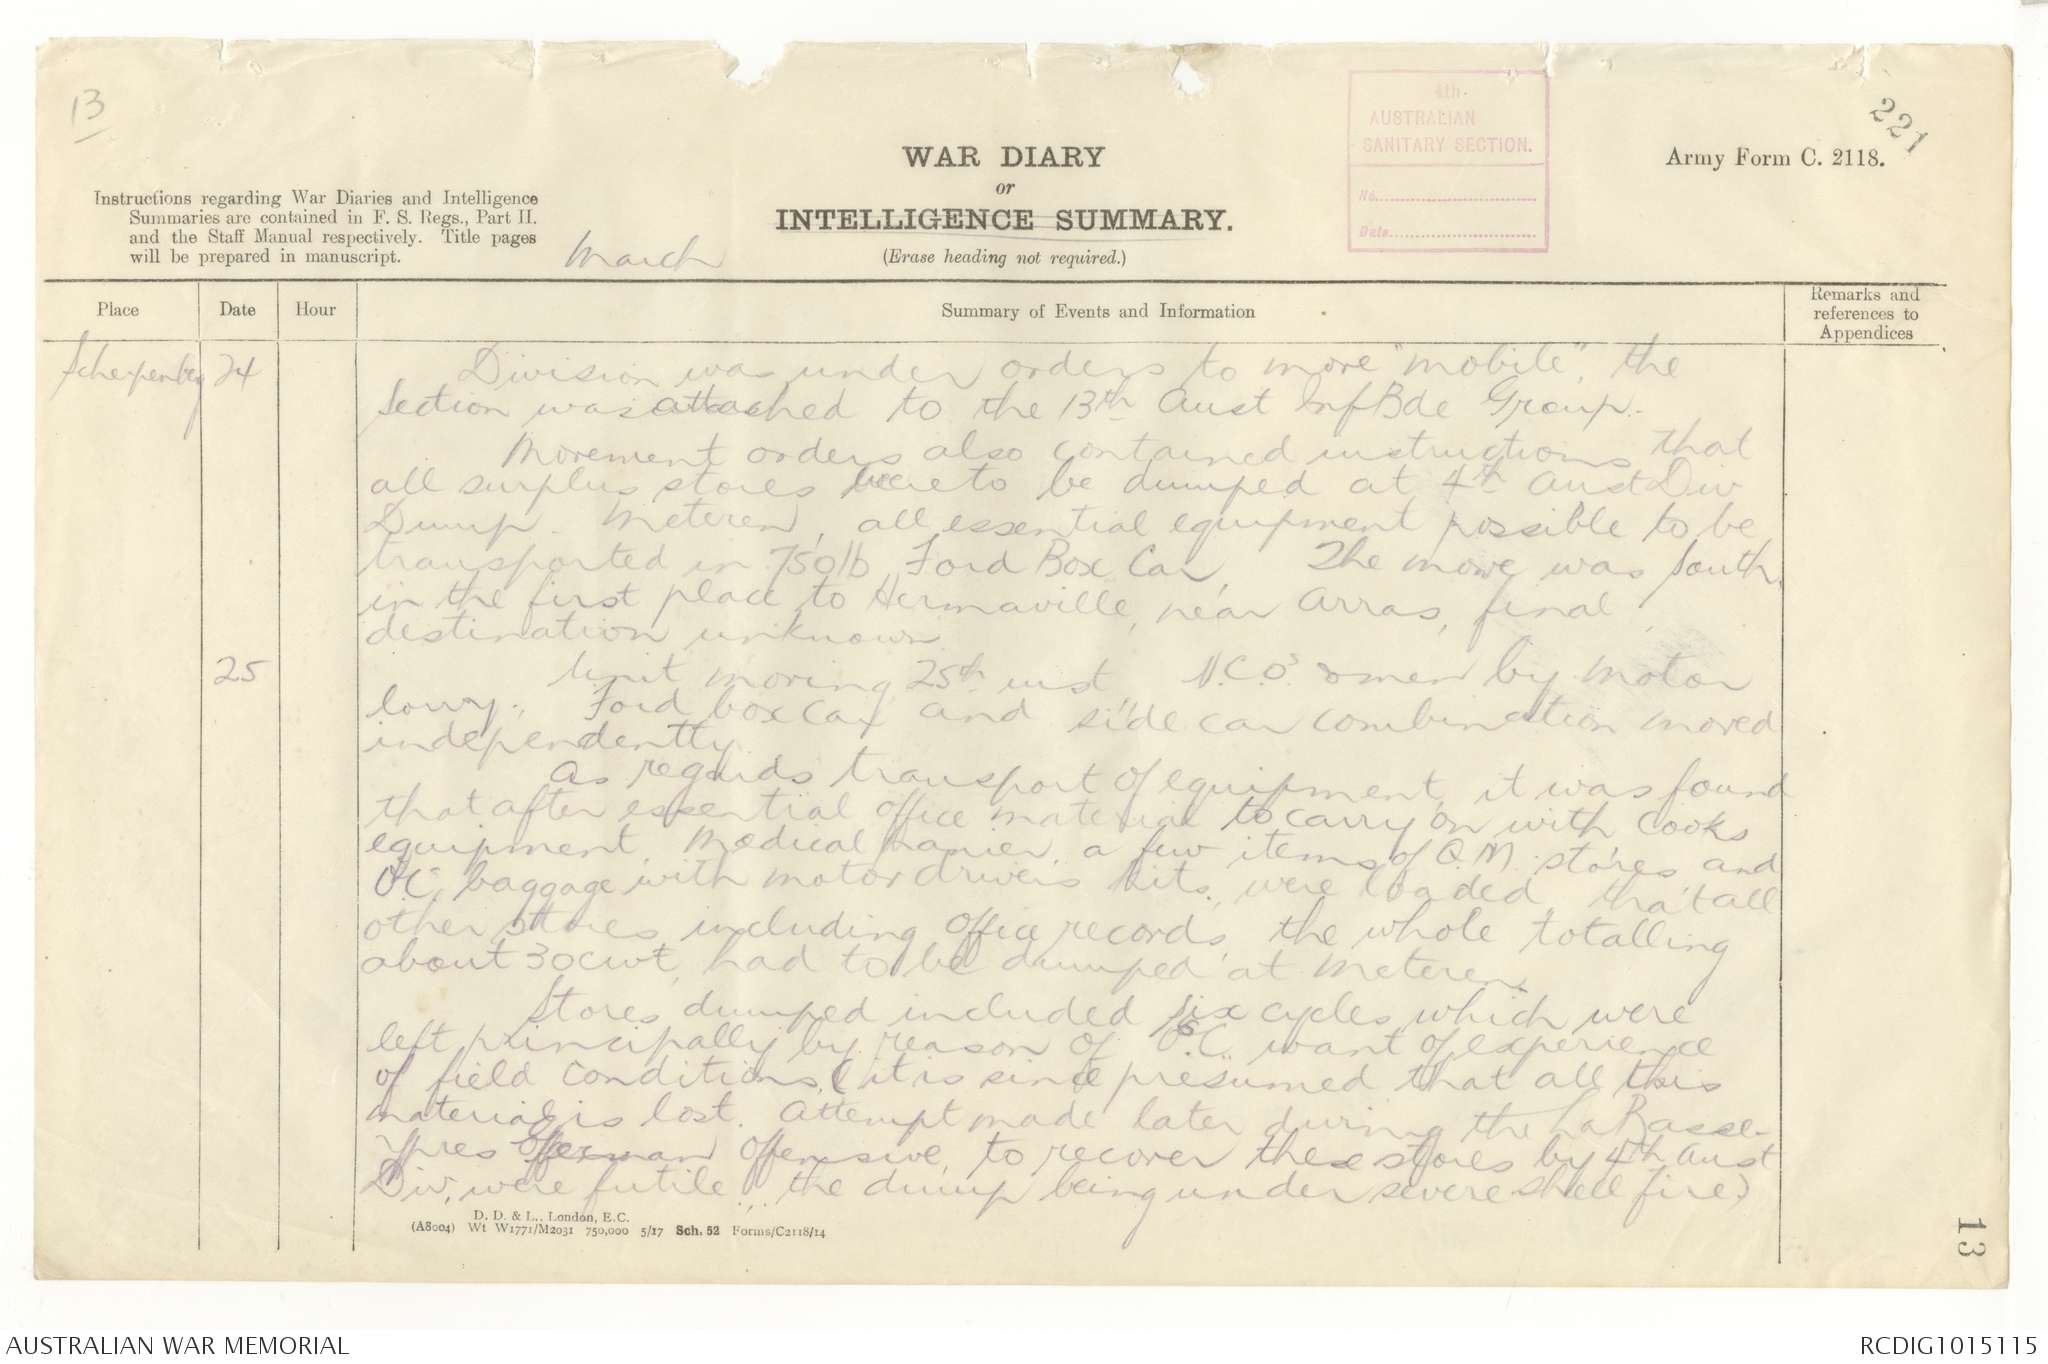 13
221
4th.
AUSTRALIAN
SANITARY SECTION.
No.
Date
WAR DIARY
or
INTELLIGENCE SUMMARY.
(Erase heading not required.)
Army Form C. 2118.
Instructions regarding War Diaries and Intelligence
Summaries are contained in F. S. Regs., Part II.
and the Staff Manual respectively. Title pages
will be prepared in manuscript.
March
Place
Date
Hour
Summary of Events and Information
Remarks and
references to
Appendices
Scherpenberg 24
Division was under orders to move "mobile", the
Section was attached to the 13th Aust Inf Bde Group.
Movement orders also contained instructions that
all surplus stores were to be dumped at 4th Aust Div
Dump. Meteren, all essential equipment possible to be
transported in 750lb Ford Box Car. The move was South,
in the first place to Hermaville, near Arras, final
destination unknown.
25
Unit moving 25th inst, N.C.Os & men by motor
lorry, Ford box car and side car combination moved
independently.
As regards transport of equipment, it was found
that after essential office material to carry on with Cooks
equipment, Medical Panier, a few items of Q.M. stores and
O.C. baggage with motor drivers kits, were loaded that all
other stores including Office records, the whole totalling
about 30cwt, had to be dumped at Meteren.
Stores dumped included six cycles which were
left principally by reason of O.C. want of experience
of field conditions (it is since presumed that all this
material is lost. Attempt made later during the La Basse-
Ypres German Offensive, to recover these stores by 4th Aust
Div, were futile, the dump being under severe shell fire)
D. D. & L., London, E.C.
(A8004) Wt W1771/M2031 750,000 5/17 Sch. 52 Forms/C2118/14
13
AUSTRALIAN WAR MEMORIAL
RCDIG1015115